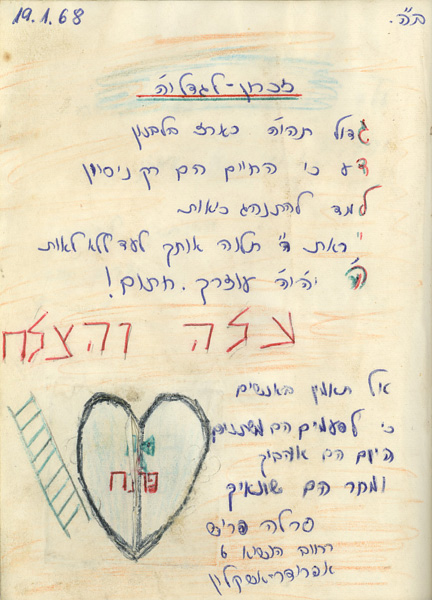 ב"ה.
19.1.68
זכרון-לגדליה
גדול תהיה כארז בלבנון
דע כי החיים הם רק ניסיון
למד להתנהג כיאות
יראת ד' תלוה אותך לעד ללא לאות
ה' יהיה עוזרך. חתום!
עלה והצלח
אל תאמין באנשים
כי לפעמים הם משתנים
היום הם אוהביך
ומחר הם שונאיך
פתח
פרלה פריש
רחוב הנשיא 6
אפרידר-אשקלון